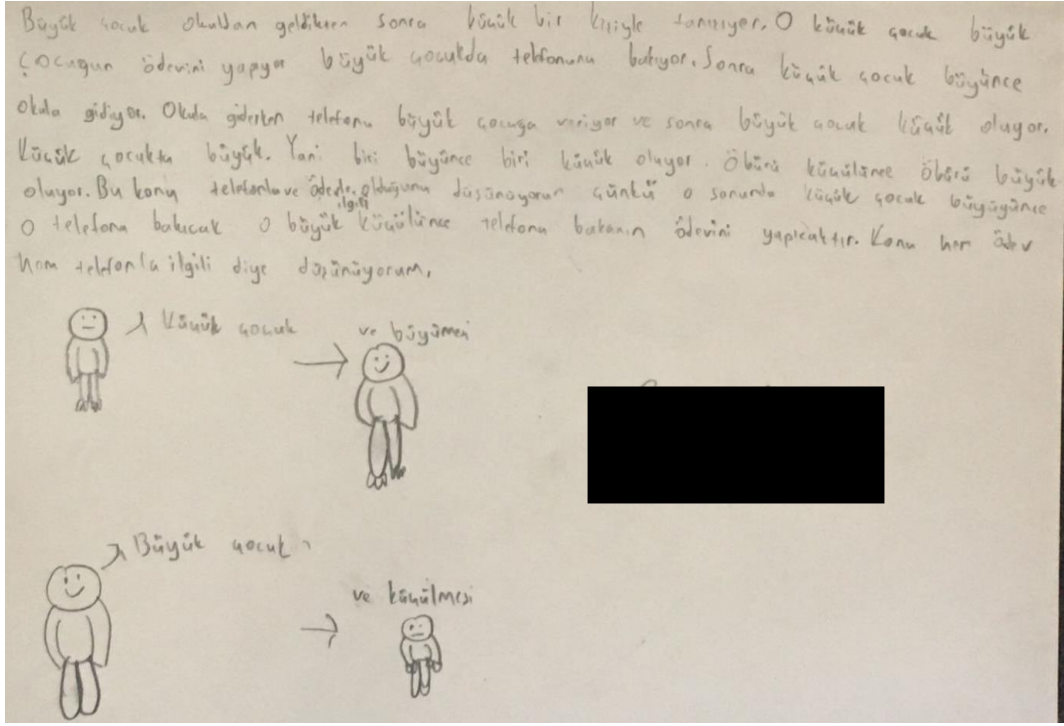 Büyük çocuk okuldan geldikten sonra küçük bir kişiyle tanışıyor. O küçük çocuk büyük
çocuğun ödevini yapıyor büyük çocukda telefonuna bakıyor. Sonra küçük çocuk büyünce
okula gidiyor. Okula giderken telefonu büyük çocuğa veriyor ve sonra büyük çocuk küçük oluyor.
Küçük çocukta büyük. Yani biri büyünce biri küçük oluyor. Öbürü küçülünce öbürü büyük
oluyor. Bu konu telefonla ve ödevle ilgili olduğunu düşünüyorum çünkü o sonunda küçük çocuk büyüyünce
o telefona bakıcak o büyük küçülünce telefona bakanın ödevini yapıcaktır. Konu hem ödev
hem telefonla ilgili diye düşünüyorum.
Küçük çocuk
ve büyümesi
Büyük çocuk
ve küçülmesi